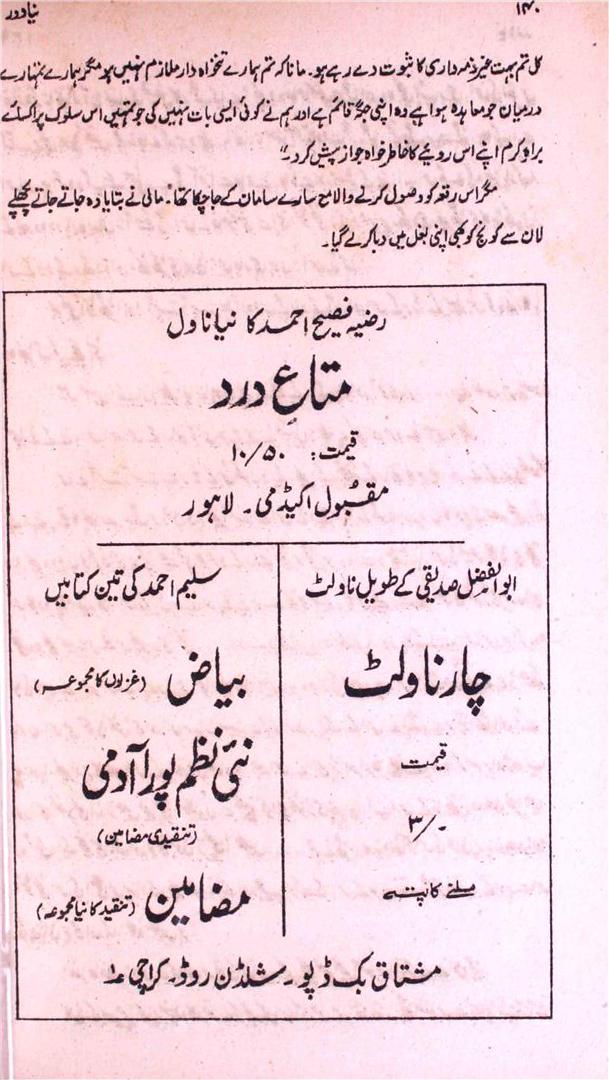 ۱۴۰
نیا دور
کل تم بہت غیر ذمہ داری کا ثبوت دے رہے ہو۔ مانا کہ تم ہمارے تنخواہ دار ملازم نہیں ہو مگر ہمارے تمہارے
درمیان جو معاہدہ ہوا ہے وہ اپنی جگہ قائم ہے اور ہم نے کوئی ایسی بات نہیں کی جو تمہیں اس سلوک پر اکسائے
براہ کرم اپنے اس رویئے کا خاطر خواہ جواز پیش کرو۔"
مگر اس رقعہ کو وصول کرنے والا مع سارے سامان کے جا چکا تھا۔ مالی نے بتایا وہ جاتے جاتے پچھلے
لان سے کونج کو بھی اپنی بغل میں دبا کر لے گیا۔
رضیہ فصیح احمد کا نیا ناول
متاعِ درد
قیمت: ۱۰/۵۰
مقبُول اکیڈمی۔ لاہور
ابوالفضل صدیقی کے طویل ناولٹ
چار ناولٹ
قیمت
۳/-
ملنے کا پتہ
سلیم احمد کی تین کتابیں
بیاض (غزلوں کا مجموعہ)
نئی نظم پورا آدمی
(تنقیدی مضامین)
مضامین (تنقید کا نیا مجموعہ)
مشتاق بک ڈپو۔ شلڈن روڈ۔ کراچی ۱